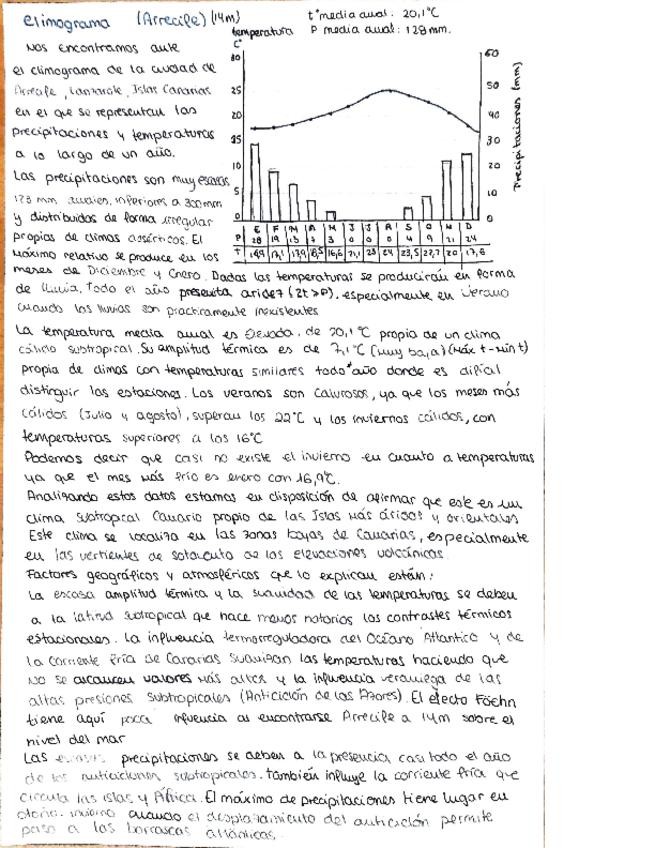 climograma (Arrecife) (14m)
tª media anual: 20,1ºC
P media anual: 128 mm.
temperatura
Cº
Precipitaciones (mm)
30
25
20
15
10
5
0
60
50
40
30
20
10
0
E F M A M J J A S O N D
P 28 19 13 7 3 0 0 0 4 9 21 24
T 16,9 17,1 17,9 18,5 16,6 21,1 23 24 23,5 22,7 20 17,6
Nos encontramos ante
el climograma de la ciudad de
Arrecife, Lanzarote, Islas Canarias
en el que se representan las
precipitaciones y temperaturas
a lo largo de un año.
Las precipitaciones son muy escasas
128 mm anuales, inferiores a 300mm
y distribuidos de forma irregular
propias de climas desérticos. El
máximo relativo se produce en los
meses de Diciembre y Enero. Dadas las temperaturas se producirán en forma
de lluvia. Todo el año presenta aridez (2t>P), especialmente en verano
cuando las lluvias son practicamente inexistentes
La temperatura media anual es elevada, de 20,1ºC propia de un clima
cálido subtropical. Su amplitud térmica es de 7,1ºC (muy baja) (Máx t - Min t)
propia de climas con temperaturas similares todo año donde es difícil
distinguir las estaciones. Los veranos son calurosos, ya que los meses más
cálidos (Julio y agosto), superan los 22ºC y los inviernos cálidos, con
temperaturas superiores a los 16ºC
Podemos decir que casi no existe el invierno en cuanto a temperaturas
ya que el mes más frío es enero con 16,9ºC.
Analizando estos datos estamos en disposición de afirmar que este es un
clima subtropical Canario propio de las Islas más áridas y orientales
Este clima se localiza en las zonas bajas de Canarias, especialmente
en las vertientes de sotavento de las elevaciones volcánicas.
Factores geográficos y atmosféricos que lo explican están:
La escasa amplitud térmica y la suavidad de las temperaturas se deben
a la latitud subtropical que hace menos notorios los contrastes térmicos
estacionales. La influencia termorreguladora del Océano Atlantico y de
la corriente fría de Canarias suavizan las temperaturas haciendo que
no se alcancen valores más altos y la influencia veraniega de las
altas presiones subtropicales (Anticiclón de las Azores). El efecto Föehn
tiene aquí poca influencia al encontrarse Arrecife a 14m sobre el
nivel del mar
Las escasas precipitaciones se deben a la presencia casi todo el año
de los anticiclones subtropicales. También influye la corriente fría que
circula las islas y África. El máximo de precipitaciones tiene lugar en
otoño-invierno cuando el desplazamiento del anticiclón permite
paso a las borrascas atlánticas.